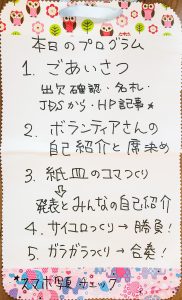 本日のプログラム
1. ごあいさつ
出欠確認・名札・
JDSから・HP記事*
2. ボランティアさんの
自己紹介と席決め
3. 紙皿のコマつくり
⇩
発表とみんなの自己紹介
4. サイコロつくり→勝負!
5. ガラガラつくり→合奏!
*スマホ写真チェック